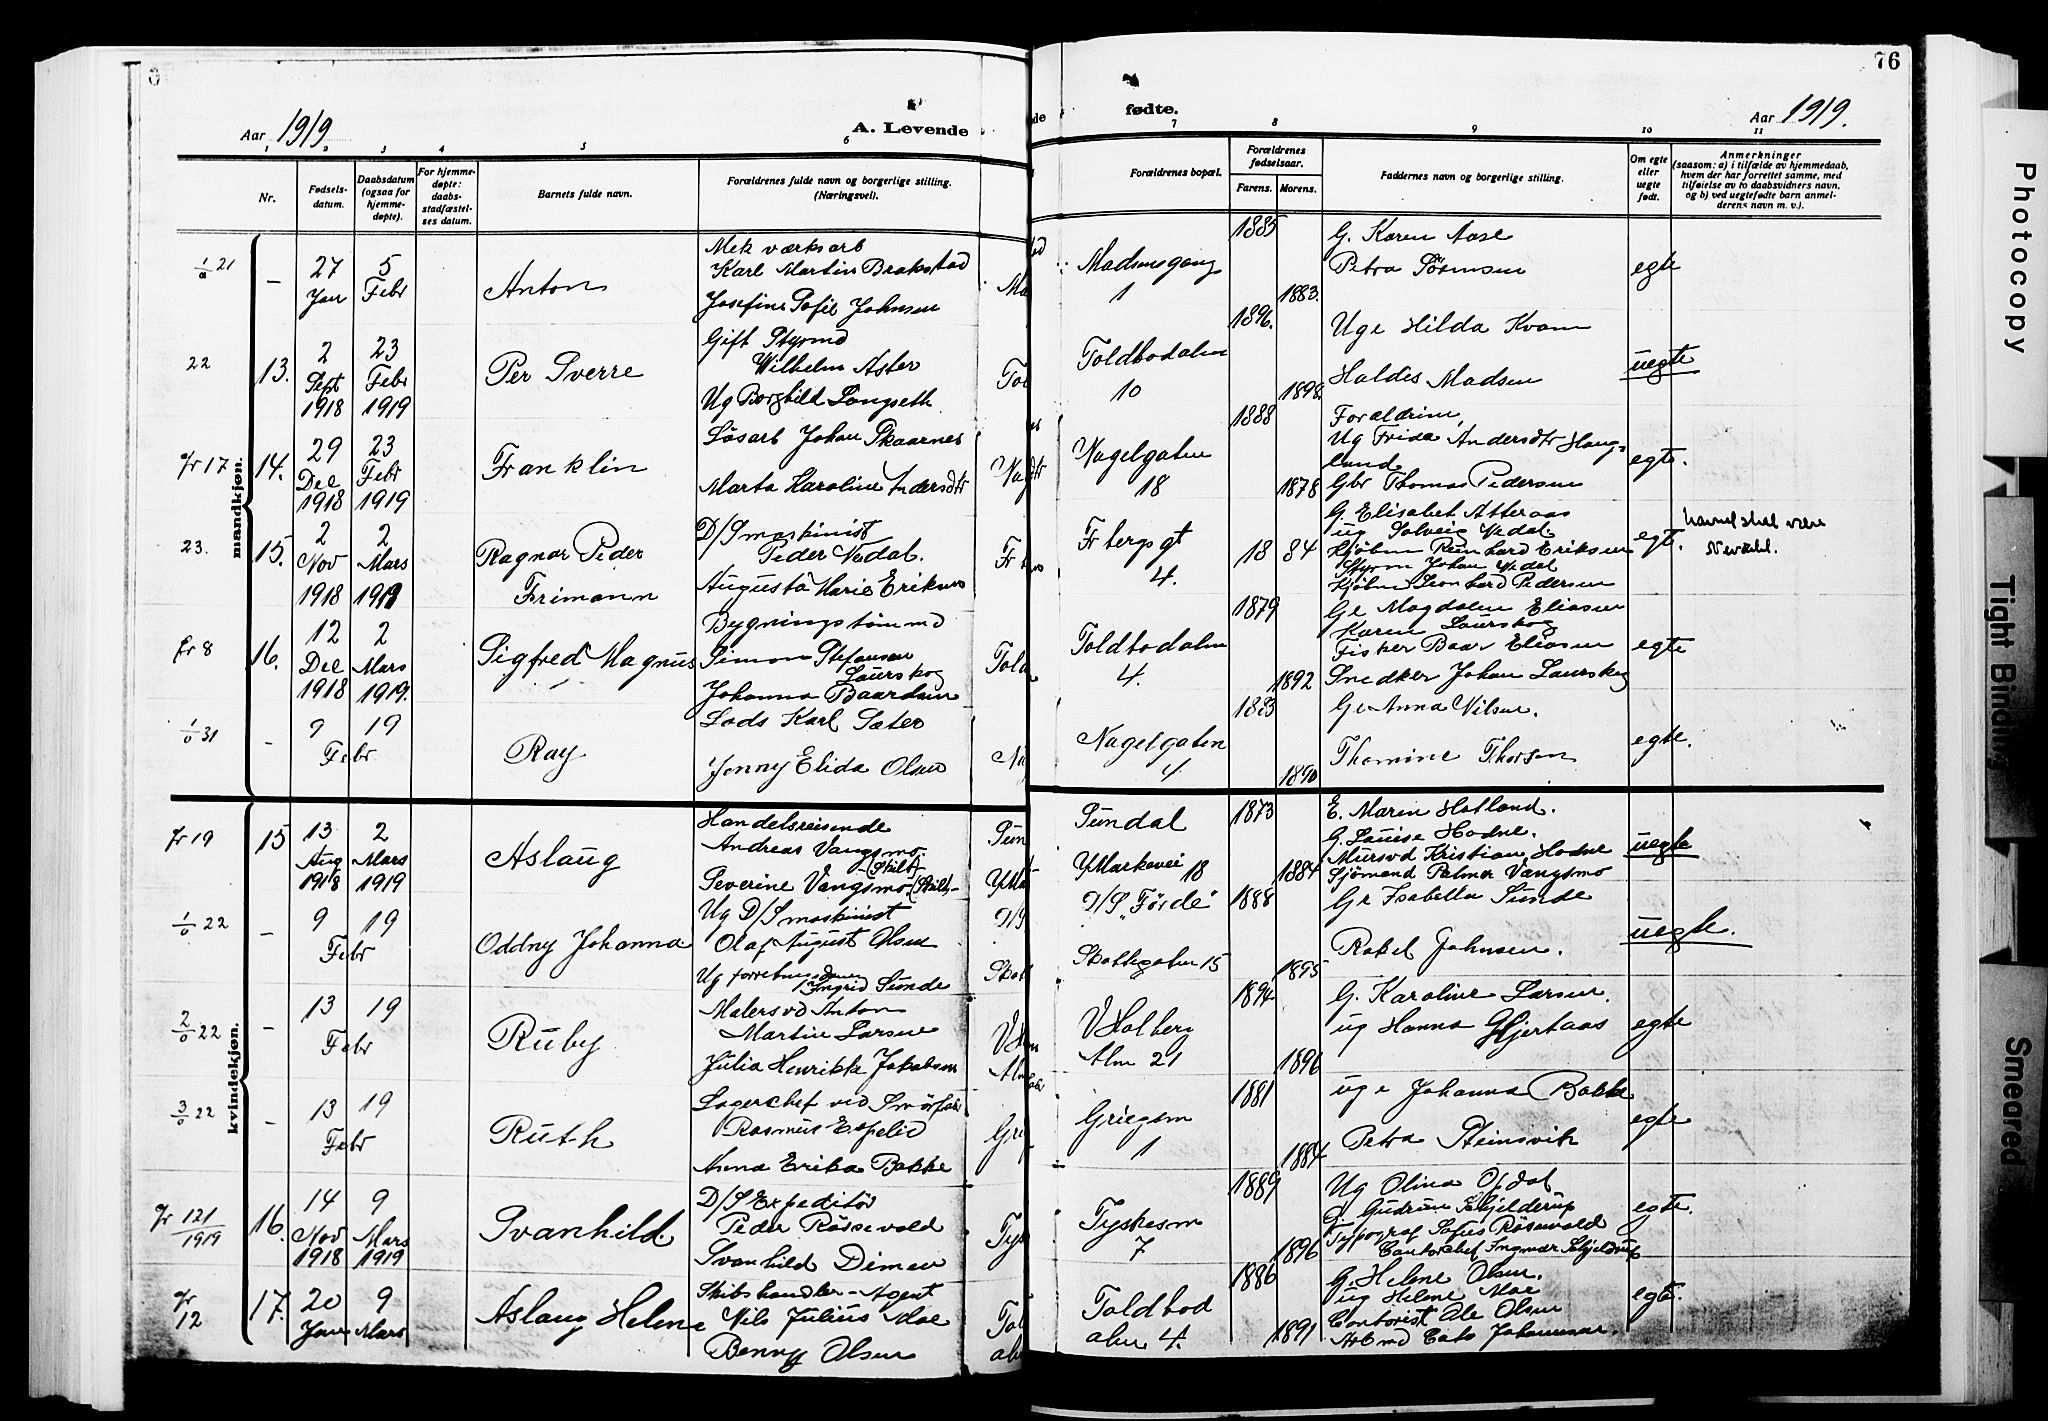 76
Aar 1919
A. Levende
fødte.
Aar 1919.
1 2 3 4 5 6 7 8 9 10 11
Nr.
Fødsels-
datum.
Daabsdatum
(ogsaa for
hjemme-
døpte).
For hjemme-
døpte:
daabs-
stadfæstel-
ses datum.
Barnets fulde navn.
Forældrenes fulde navn og borgerlige stilling.
(Næringsvei).
Forældrenes bopæl.
Forældrenes
fødselsaar.
Farens. Morens.
Faddernes navn og borgerlige stilling.
Om egte
eller
uegte
født.
Anmerkninger
(saasom: a) i tilfælde av hjemmedaab,
hvem der har forrettet samme, med
tilføielse av to daabsvidners navn,
og b) ved uegtefødte barn anmel-
derens navn m. v.).
mandkjøn.
21
27 Jan
5 Febr
Anton
Mek værksarb
Karl Martin Brakstad
Josefine Sofie Johnsen
Madsensgang
1
1885
1883.
G. Karen Aase
Petra Sörensen
egte
22
13.
2
Sept
1918
23
Febr
1919
Per Sverre
Gift Styrmd
Wilhelm Aster
Ug Borghild Langseth
Toldbodalm
10
1896.
1898.
Uge Hilda Kvam
Haldis Madsen
uegte
17
14.
29
Dec
1918
23
Febr
1919
Franklin
Løsarb Johan Skaarnes
Marta Karoline Andersdtr
Nagelgaten
18
1888
1878
Forældrene,
Ug Frida Andersdtr Haug-
land
Gbr Thomas Pedersen
egte.
23.
15.
2
Nov
1918
2
Mars
1919
Ragnar Peder
Frimann
D/S maskinist
Peder Vedal.
Augusta Marie Eriksen
Fr bergsgt
4.
18 84
G. Elisabet Atteraas
ug Solveig Vedal
Kjøbm Reinhard Eriksen
Styrm Johan Vedal
Kjøbm Leonhard Pedersen
egt.
Navnet skal være
8
16.
12
Dec
1918
2
Mars
1919.
Sigfred Magnus
Bygningstømmd
Simon Stefansen
Laurskog
Johanna Baardsen
Toldbodalm
4.
1879
1892
Ge Magdalen Eliasen
Karen Laurskog
Fisker Baar Eliasen
Snedker Johan Laurskog
egte
31
9 19
Febr
Ray
Lods Karl Sæter
Jenny Elida Olsen
Nagelgaten
4.
1883
1890
Ge Anna Nilsen.
Thomine Thorsen
egte.
kvindekjøn.
19
15
13
Aug
1918
2
Mars
1919
Aslaug
Handelsreisende
Andreas Vangsmo
(Skilt)
Severine Vangsmo (Skilt)
Sundal
Y Markevei 18
1873
1884
E. Maren Hatland.
G. Lauise Hodne.
Mursvd Kristian Hodne
Sjömand Palmer Vangsmo
uegte
22
9 19
Febr
Oddny Johanna
Ug D/S maskinist
Olaf August Olsen
Ug forretningsdame
Ingrid Sunde
D/S "Förde"
Skottegaten 15
1888
1895
Ge Isabella Sunde
Rakel Johnsen.
uegte.
22
13 19
Febr
Ruby
Malersvd Anton
Martin Larsen
Julia Henrikke Jakobsen
V Holberg
Alm 21
1894
1896
G. Karoline Larsen.
ug Hanna Gjertaas
egte
22
13 19
Febr
Ruth
Lagerchef ved Smörfabr
Rasmus Espelid
Anna Erika Bakke
Griegsm
1
1881
1884
ug e Johanna Bakke
Petra Steinsvik
egte
121
1919
16.
14
Nov
1918
9
Mars
1919
Svanhild.
D/S Expeditör
Peder Rössevold
Svanhild Dimen
Tyskesm
7
1889
1896
Ug Olina Opdal
G. Gudrun Schjelderup
Typograf Sofus Rösevold
Contorchef Ingvar Schjelderup
egte.
12
17.
20
Jan
9
Mars
Aslaug Helene
Skibshandler-Agent
Nils Julius Moe
Benny Olsen
Toldbod
alm 4.
1886
1891
G. Helene Olsen.
ug Helene Moe
Contorist Ole Olsen
Arbmd Cato Johannesen.
egte.
Photocopy
Tight Binding
Smeared